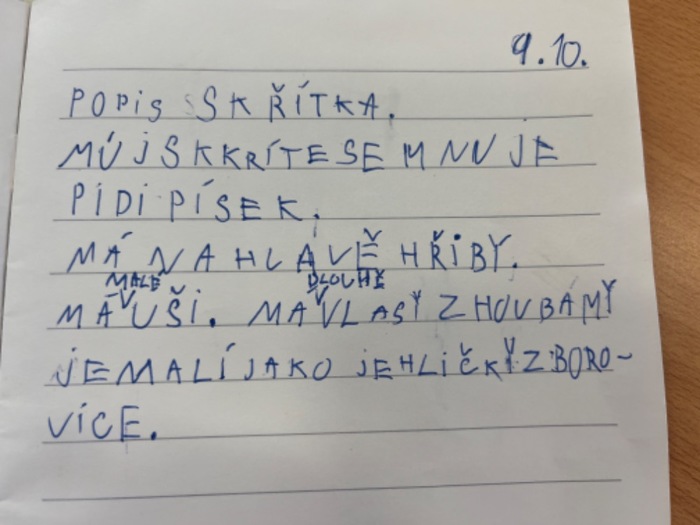 9.10.
POPIS SKŘÍTKA.
MŮJ SKKRÍTE SE MNUJE
PIDIPÍSEK.
MÁ NA HLAVĚ HŘIBY.
MALÉ DLOUHÉ
MÁ UŠI. MÁ VLASY Z HOUBAMY
JE MALÍ JAKO JEHLIČKY Z BORO-
VICE.